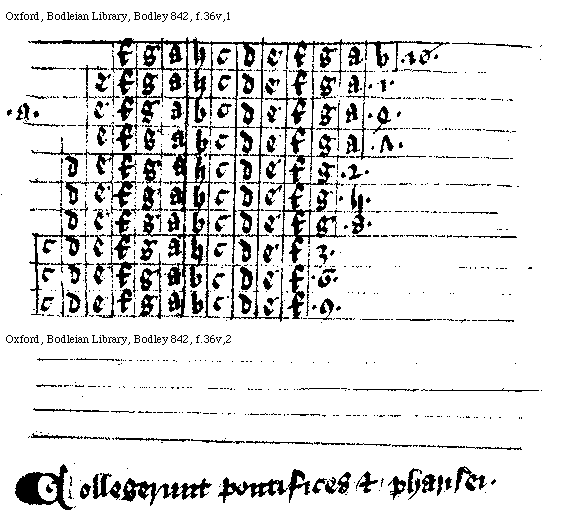 Oxford, Bodleian Library, Bodley 842, f.36v,1
f g a h c d e f g a b .10.
e f g a h c d e f g a .1.
.a. e f g a b c d e f g a .4.
e f g a b c d e f g a .7.
d e f g a h c d e f g .2.
d e f g a b c d e f g .5.
d e f g a b c d e f g .8.
c d e f g a h c d e f 3.
c d e f g a b c d e f .6.
c d e f g a b c d e f .9.
Oxford, Bodleian Library, Bodley 842, f.36v,2
Collegerunt pontifices & pharisei.